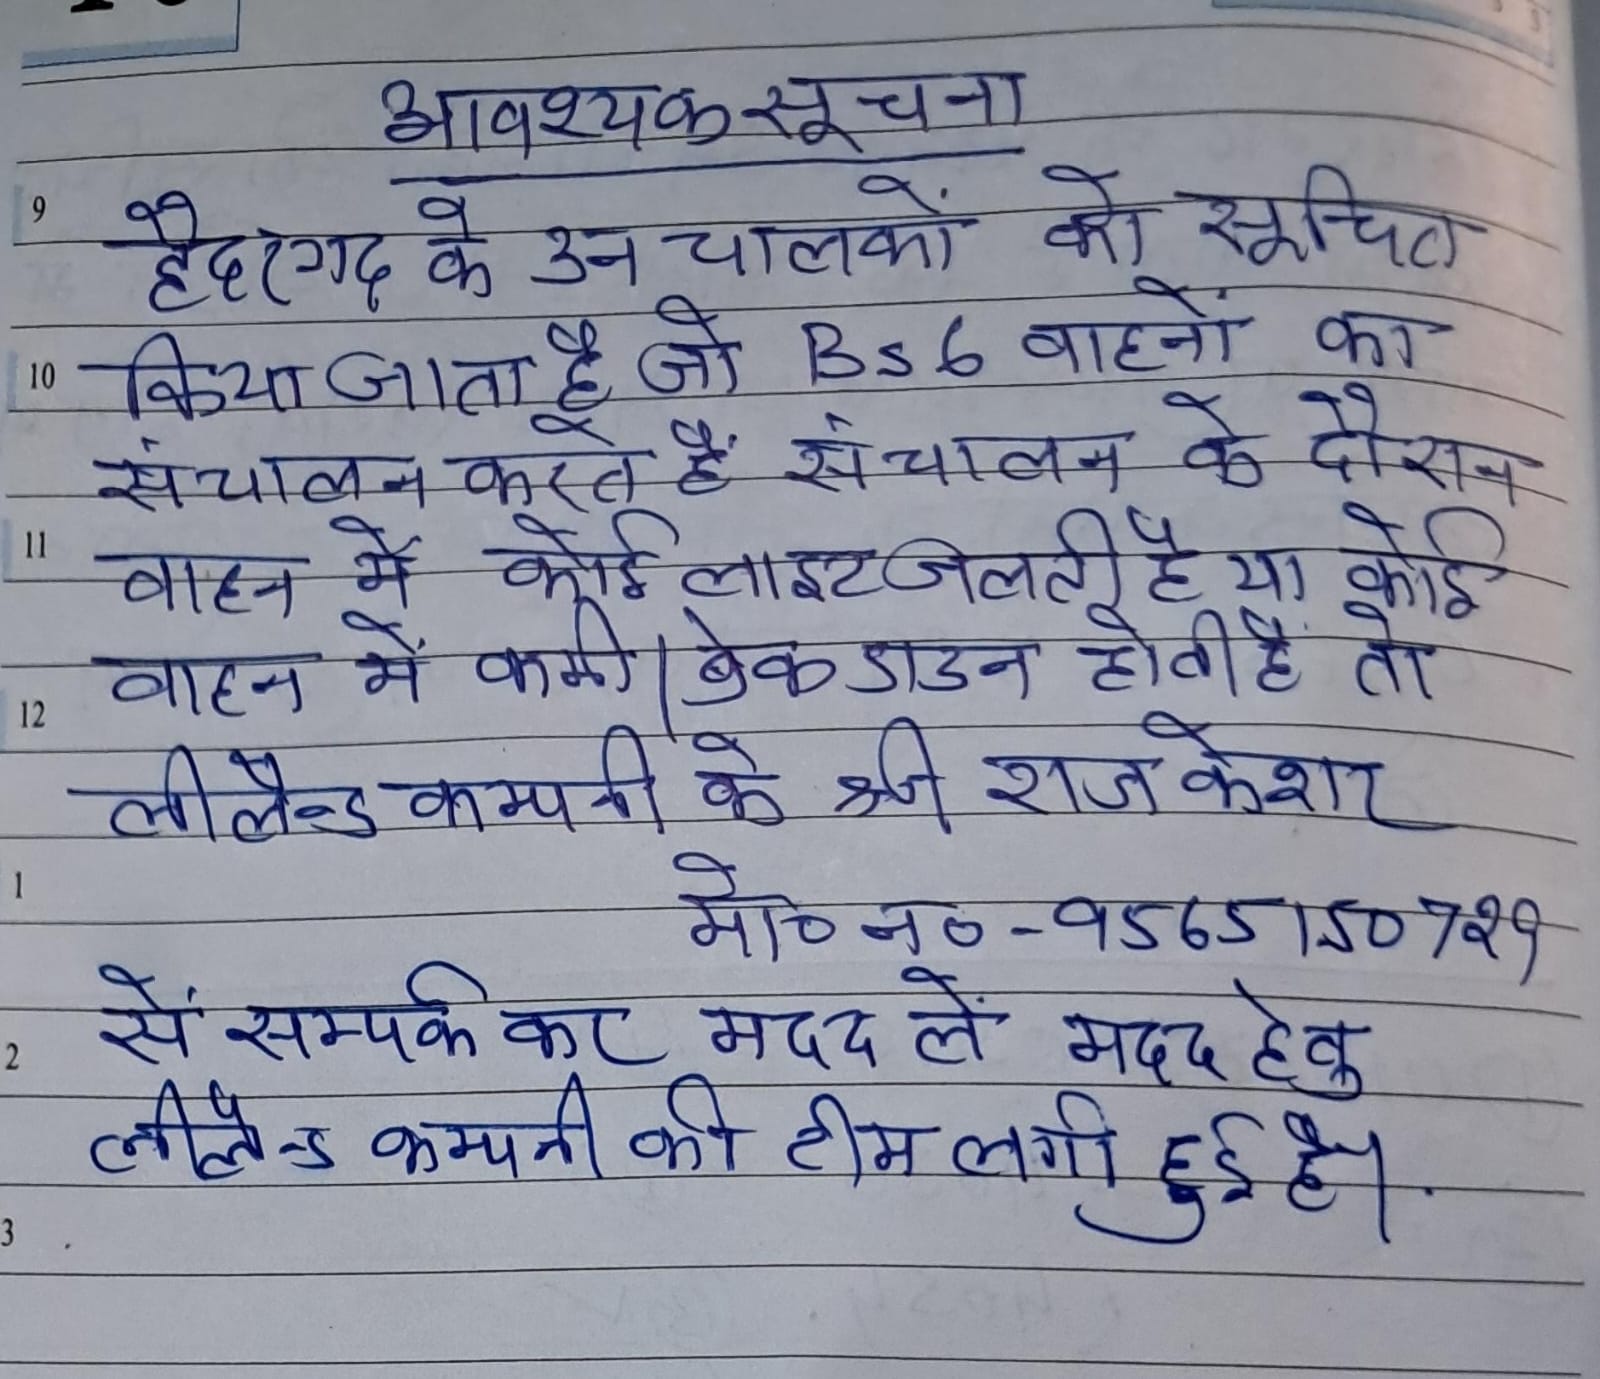 आवश्यक सूचना
9
हैदरगढ के उन चालकों को सूचित
10 किया जाता है जो Bs6 वाहनों का
संचालन करते हैं संचालन के दौरान
11
वाहन में कोई लाइट जलती है या कोई
वाहन में कमी/ब्रेक डाउन होती हैं तो
12
लीलैन्ड कम्पनी के श्री राज केशर
1
मो० न० - 9565150729
सें सम्पर्क कर मदद लें मदद हेतु
2
लीलैन्ड कम्पनी की टीम लगी हुई है।
3